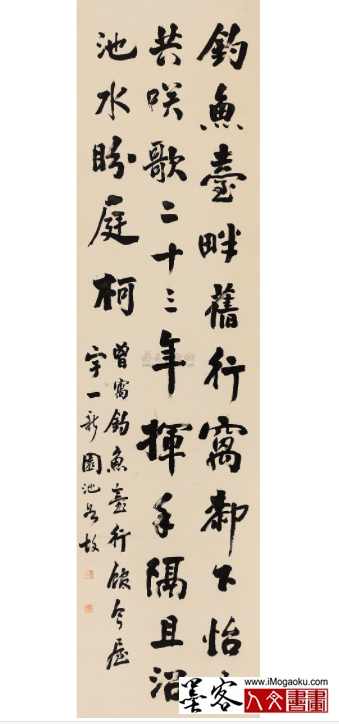 釣魚臺畔舊行窩都下怡
共咲歌二十三年揮手隔且沿
池水盼庭柯
曾寓釣魚臺行館今屋
宇一新園池故
www.iMogaoku.com
墨客人文書畫